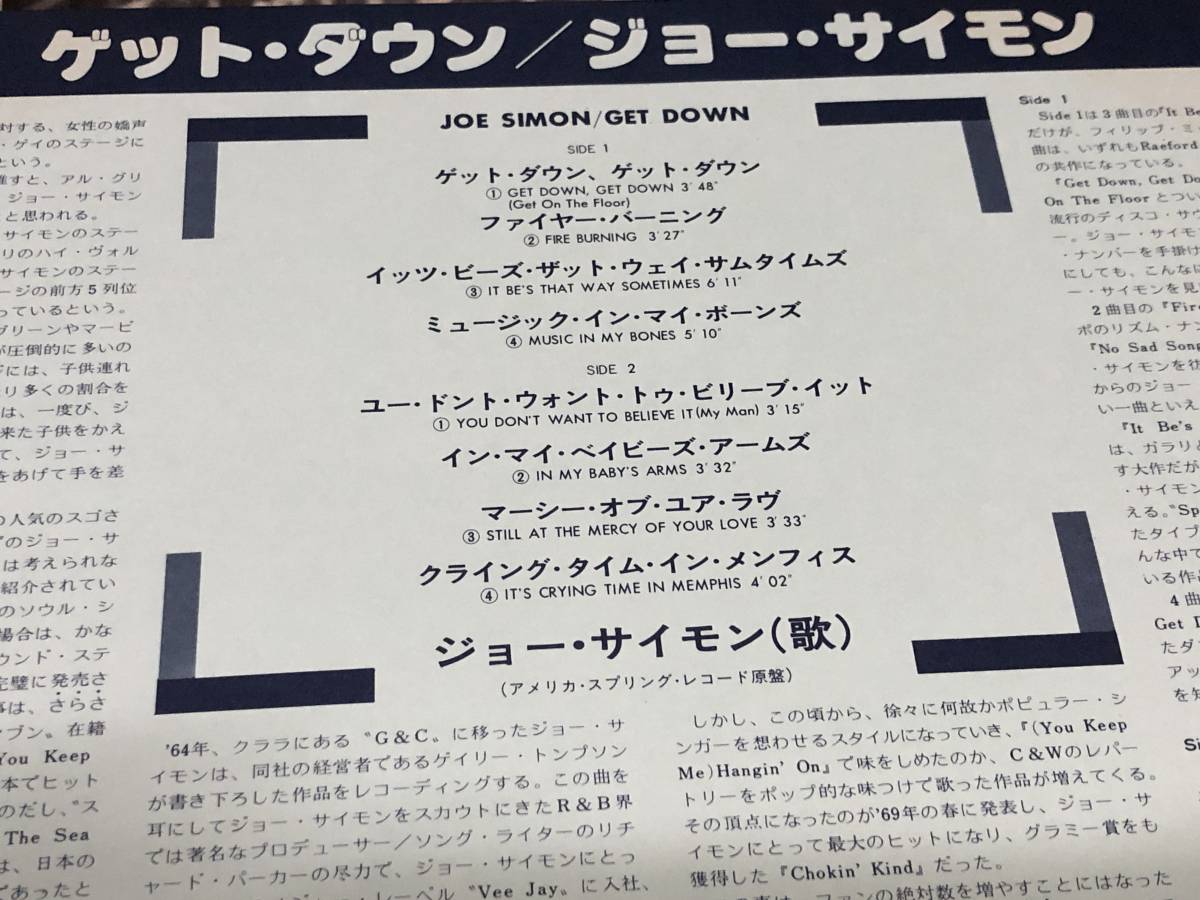 ゲット・ダウン／ジョー・サイモン
対する、女性の嬌声
・ゲイのステージに
という。
推すと、アル・グリ
ジョー・サイモン
と思われる。
サイモンのステー
リのハイ・ヴォル
サイモンのステー
ージの前方5列位
っているという。
グリーンやマービ
が圧倒的に多いの
ジには、子供連れ
リ多くの割合を
は、一度び、ジ
来た子供をかえ
て、ジョー・サ
をあげて手を差
の人気のスゴさ
のジョー・サ
は考えられな
紹介されてい
のソウル・シ
場合は、かな
ウンド・ステ
完璧に発売さ
事は、さらさ
・ブン。在籍
You Keep
本でヒット
のだし、〝ス
The Sea
は、日本の
であったと
JOE SIMON/GET DOWN
SIDE 1
ゲット・ダウン、ゲット・ダウン
① GET DOWN, GET DOWN 3′48″
(Get On The Floor)
ファイヤー・バーニング
② FIRE BURNING 3′27″
イッツ・ビーズ・ザット・ウェイ・サムタイムズ
③ IT BE'S THAT WAY SOMETIMES 6′11″
ミュージック・イン・マイ・ボーンズ
④ MUSIC IN MY BONES 5′10″
SIDE 2
ユー・ドント・ウォント・トゥ・ビリーブ・イット
① YOU DON'T WANT TO BELIEVE IT(My Man) 3′15″
イン・マイ・ベイビーズ・アームズ
② IN MY BABY'S ARMS 3′32″
マーシー・オブ・ユア・ラヴ
③ STILL AT THE MERCY OF YOUR LOVE 3′33″
クライング・タイム・イン・メンフィス
④ IT'S CRYING TIME IN MEMPHIS 4′02″
ジョー・サイモン(歌)
(アメリカ・スプリング・レコード原盤)
'64年、クララにある〝G&C〟に移ったジョー・サ
イモンは、同社の経営者であるゲイリー・トンプソン
が書き下ろした作品をレコーディングする。この曲を
耳にしてジョー・サイモンをスカウトにきたR&B界
では著名なプロデューサー／ソング・ライターのリチ
ャード・パーカーの尽力で、ジョー・サイモンにとっ
レーベル〝Vee Jay〟に入社、
しかし、この頃から、徐々に何故かポピュラー・シ
ンガーを想わせるスタイルになっていき、『(You Keep
Me)Hangin' On』で味をしめたのか、C&Wのレパー
トリーをポップ的な味つけで歌った作品が増えてくる。
その頂点になったのが'69年の春に発表し、ジョー・サ
イモンにとって最大のヒットになり、グラミー賞をも
獲得した『Chokin' Kind』だった。
ファンの絶対数を増やすことにはなった
Side 1
Side 1は3曲目の『It Be
だけが、フィリップ・ミ
曲は、いずれもRaeford
の共作になっている。
『Get Down, Get Do
On The Floorとつい
流行のディスコ・サ
ー。ジョー・サイモ
・ナンバーを手掛け
にしても、こんなに
ー・サイモンを見
2曲目の『Fire
ポのリズム・ナン
『No Sad Song
・サイモンを彷
からのジョー
い一曲といえ
『It Be's
は、ガラリと
す大作だが
・サイモン
える。〝Sp
たタイプ
んな中で
いる作品
4曲
Get D
たダ
アッ
を知
Si